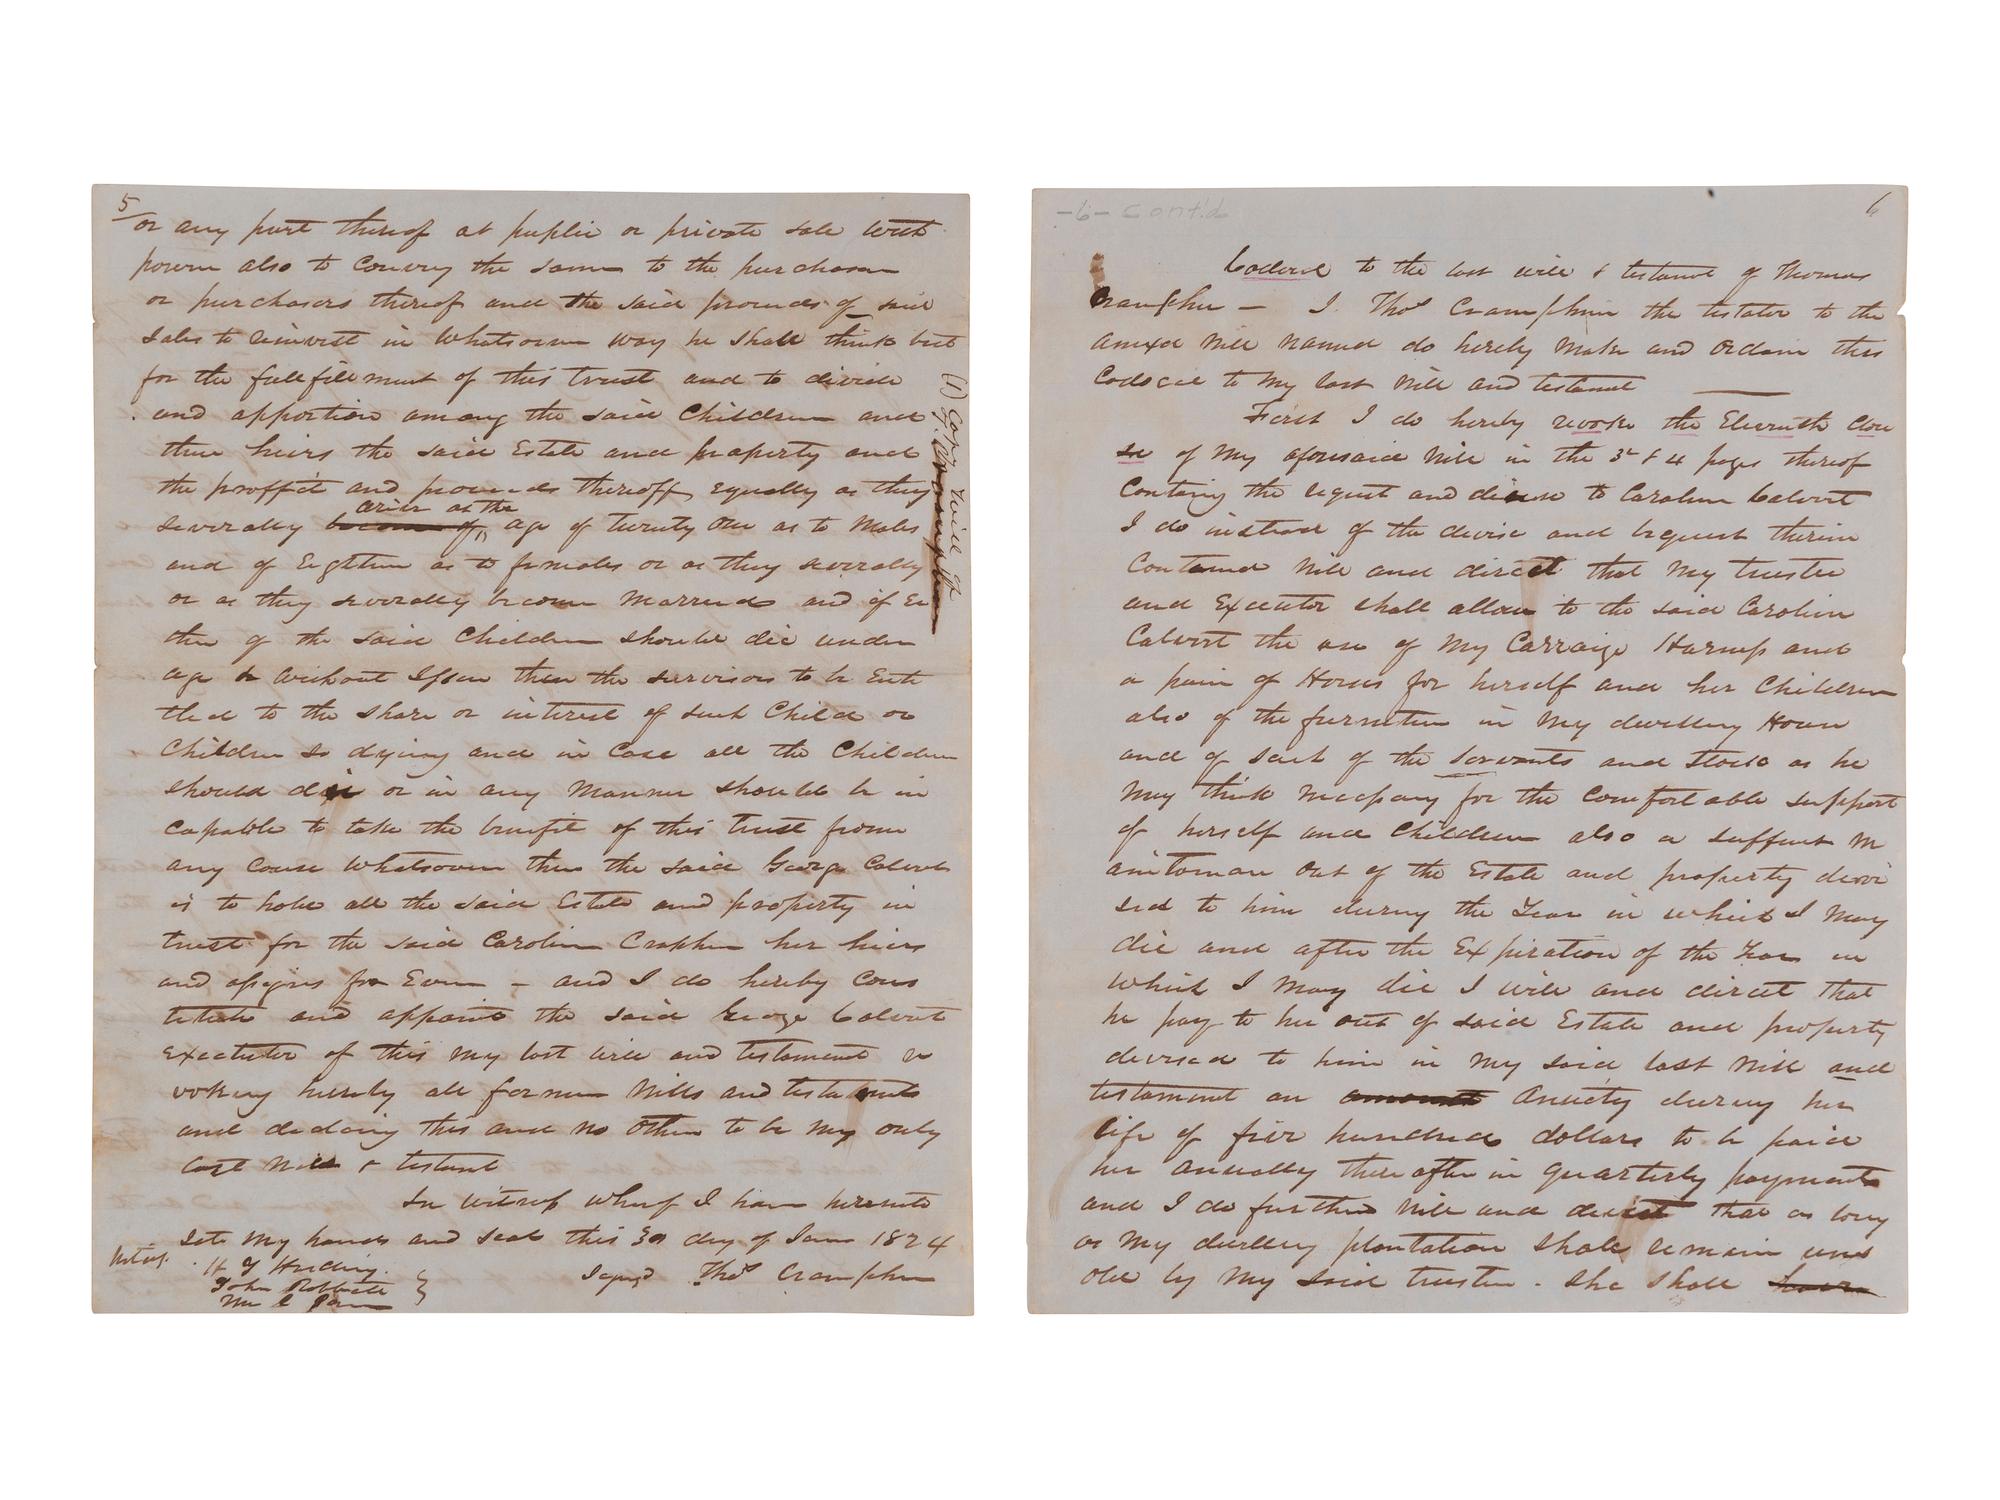 5
or any part thereof at public or private sale with
power also to Convey the same to the purchaser
or purchasers thereof and the said proceeds of said
Sales to reinvest in Whatsoever way he shall think best
for the fullfillment of this trust and to divide
and apportion among the said Children and
their heirs the said Estate and property and
the proffit and proceeds thereoff equally as they
arive at the
severally become of age of twenty one as to Males
and of Eighteen as to females or as they severally
or as they severally become Marrried and if Ei
ther of the said Children should die under
age & without Issue then the survivors to be Enti
tled to the share or interest of such Child or
Children so dying and in Case all the Children
should die or in any Manner should be in
capable to take the benefit of this trust from
any cause Whatsoever then the said George Calvert
is to hold all the said Estate and property in
trust for the said Caroline her heirs
and assigns for Ever – and I do hereby Cons
titute and appoint the said George Calvert
Executor of this my last will and testament re
voking hereby all former Wills and testaments
and declaring this and no Other to be my only
last Will & testamt
In witness wherof I have hereunto
Sett My hand and seal this 30 day of Jan 1824
Signed Thos Cramphin
H
John
Wm C
(1) Copy Will of
-6- cont'd
6
Codocil to the last will & testamt of Thomas
Cramphin – I. Thos Cramphin the testator to the
Anexed Will Named do hereby Make and Ordain this
Codocil to My last Will and testamt
First I do hereby revoke the Eleventh Clau
se of My aforesaid Will in the 3d & 4 pages thereof
Containg the request and devise to Caroline Calvert
I do instead of the devise and bequest therein
Contained Will and direct that My trustee
and Executor shall allow to the said Caroline
Calvert the use of My Carraige Harness and
a pair of Horses for herself and her Children
also of the furniture in My dwelling House
and of such of the Servants and Stock as he
May think Necessary for the Comfortable support
of herself and Children also a M
out of the Estate and property devi
sed to him during the Year in which I May
die and after the Expiration of the Year in
which I May die I will and direct that
he pay to her out of said Estate and property
devised to him in My said last Will and
testament an amount Anuety during her
life of five hundred dollars to be paid
her Anually thereafter in quarterly payments
and I do further Will and direct that as long
as My dwelling plantation shall remain uns
old by My Said trustee. She shall have